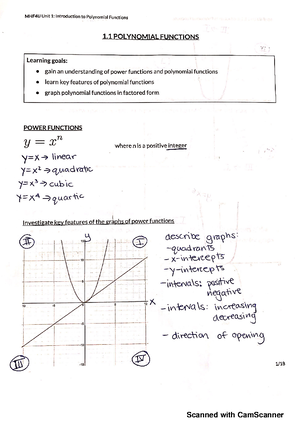 MHF4U Unit 1: Introduction to Polynomial Functions
1.1 POLYNOMIAL FUNCTIONS
Learning goals:
• gain an understanding of power functions and polynomial functions
• learn key features of polynomial functions
• graph polynomial functions in factored form
POWER FUNCTIONS
y = xⁿ where n is a positive integer
y=x → linear
y=x² → quadratic
y=x³ → cubic
y=x⁴ → quartic
Investigate key features of the graphs of power functions
II y I
x
III IV
describe graphs:
-quadrants
-x-intercepts
-y-intercepts
-intervals: positive
negative
-intervals: increasing
decreasing
- direction of opening
1/18
Scanned with CamScanner